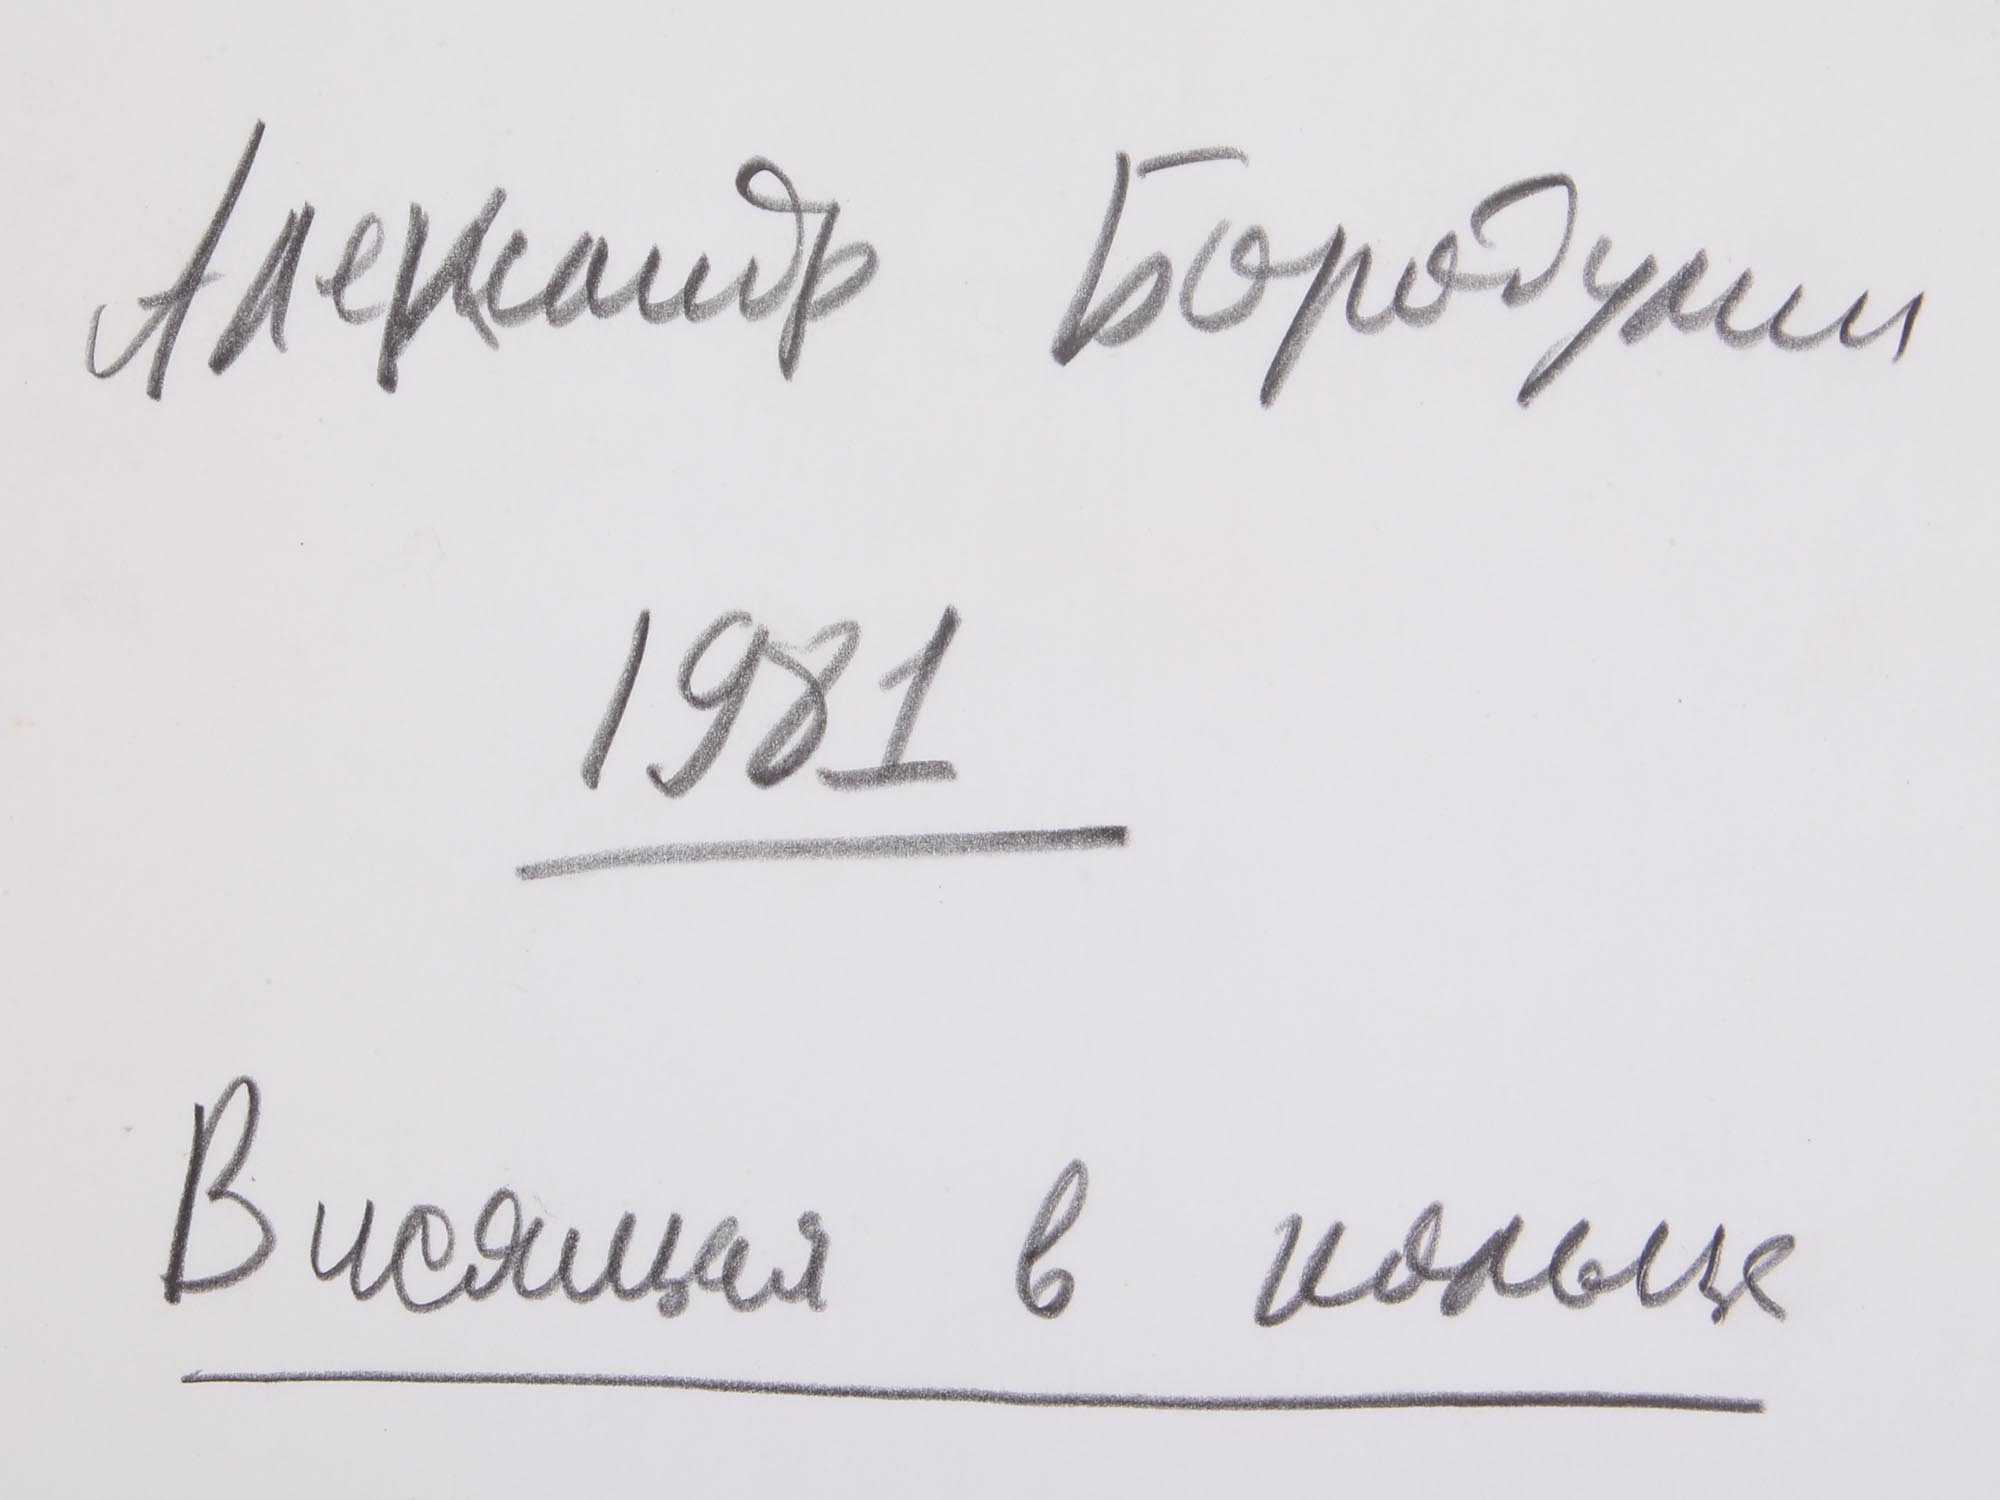 Александр Бородулин
1981
Висящая в кольце